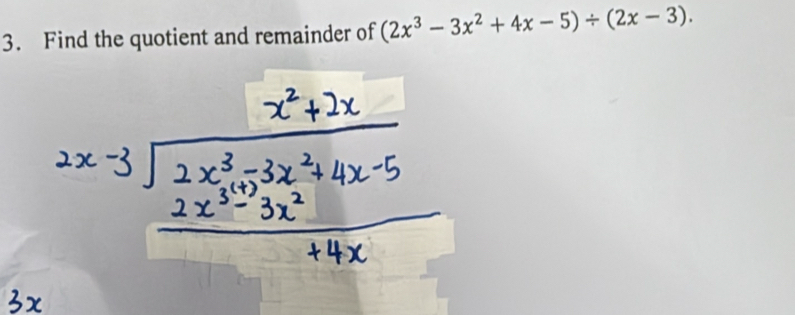 3. Find the quotient and remainder of (2x³ − 3x² + 4x − 5) ÷ (2x − 3).
x² + 2x
2x - 3 √ 2x³ - 3x² + 4x - 5
2x³ (+)- 3x²
+ 4x
3x